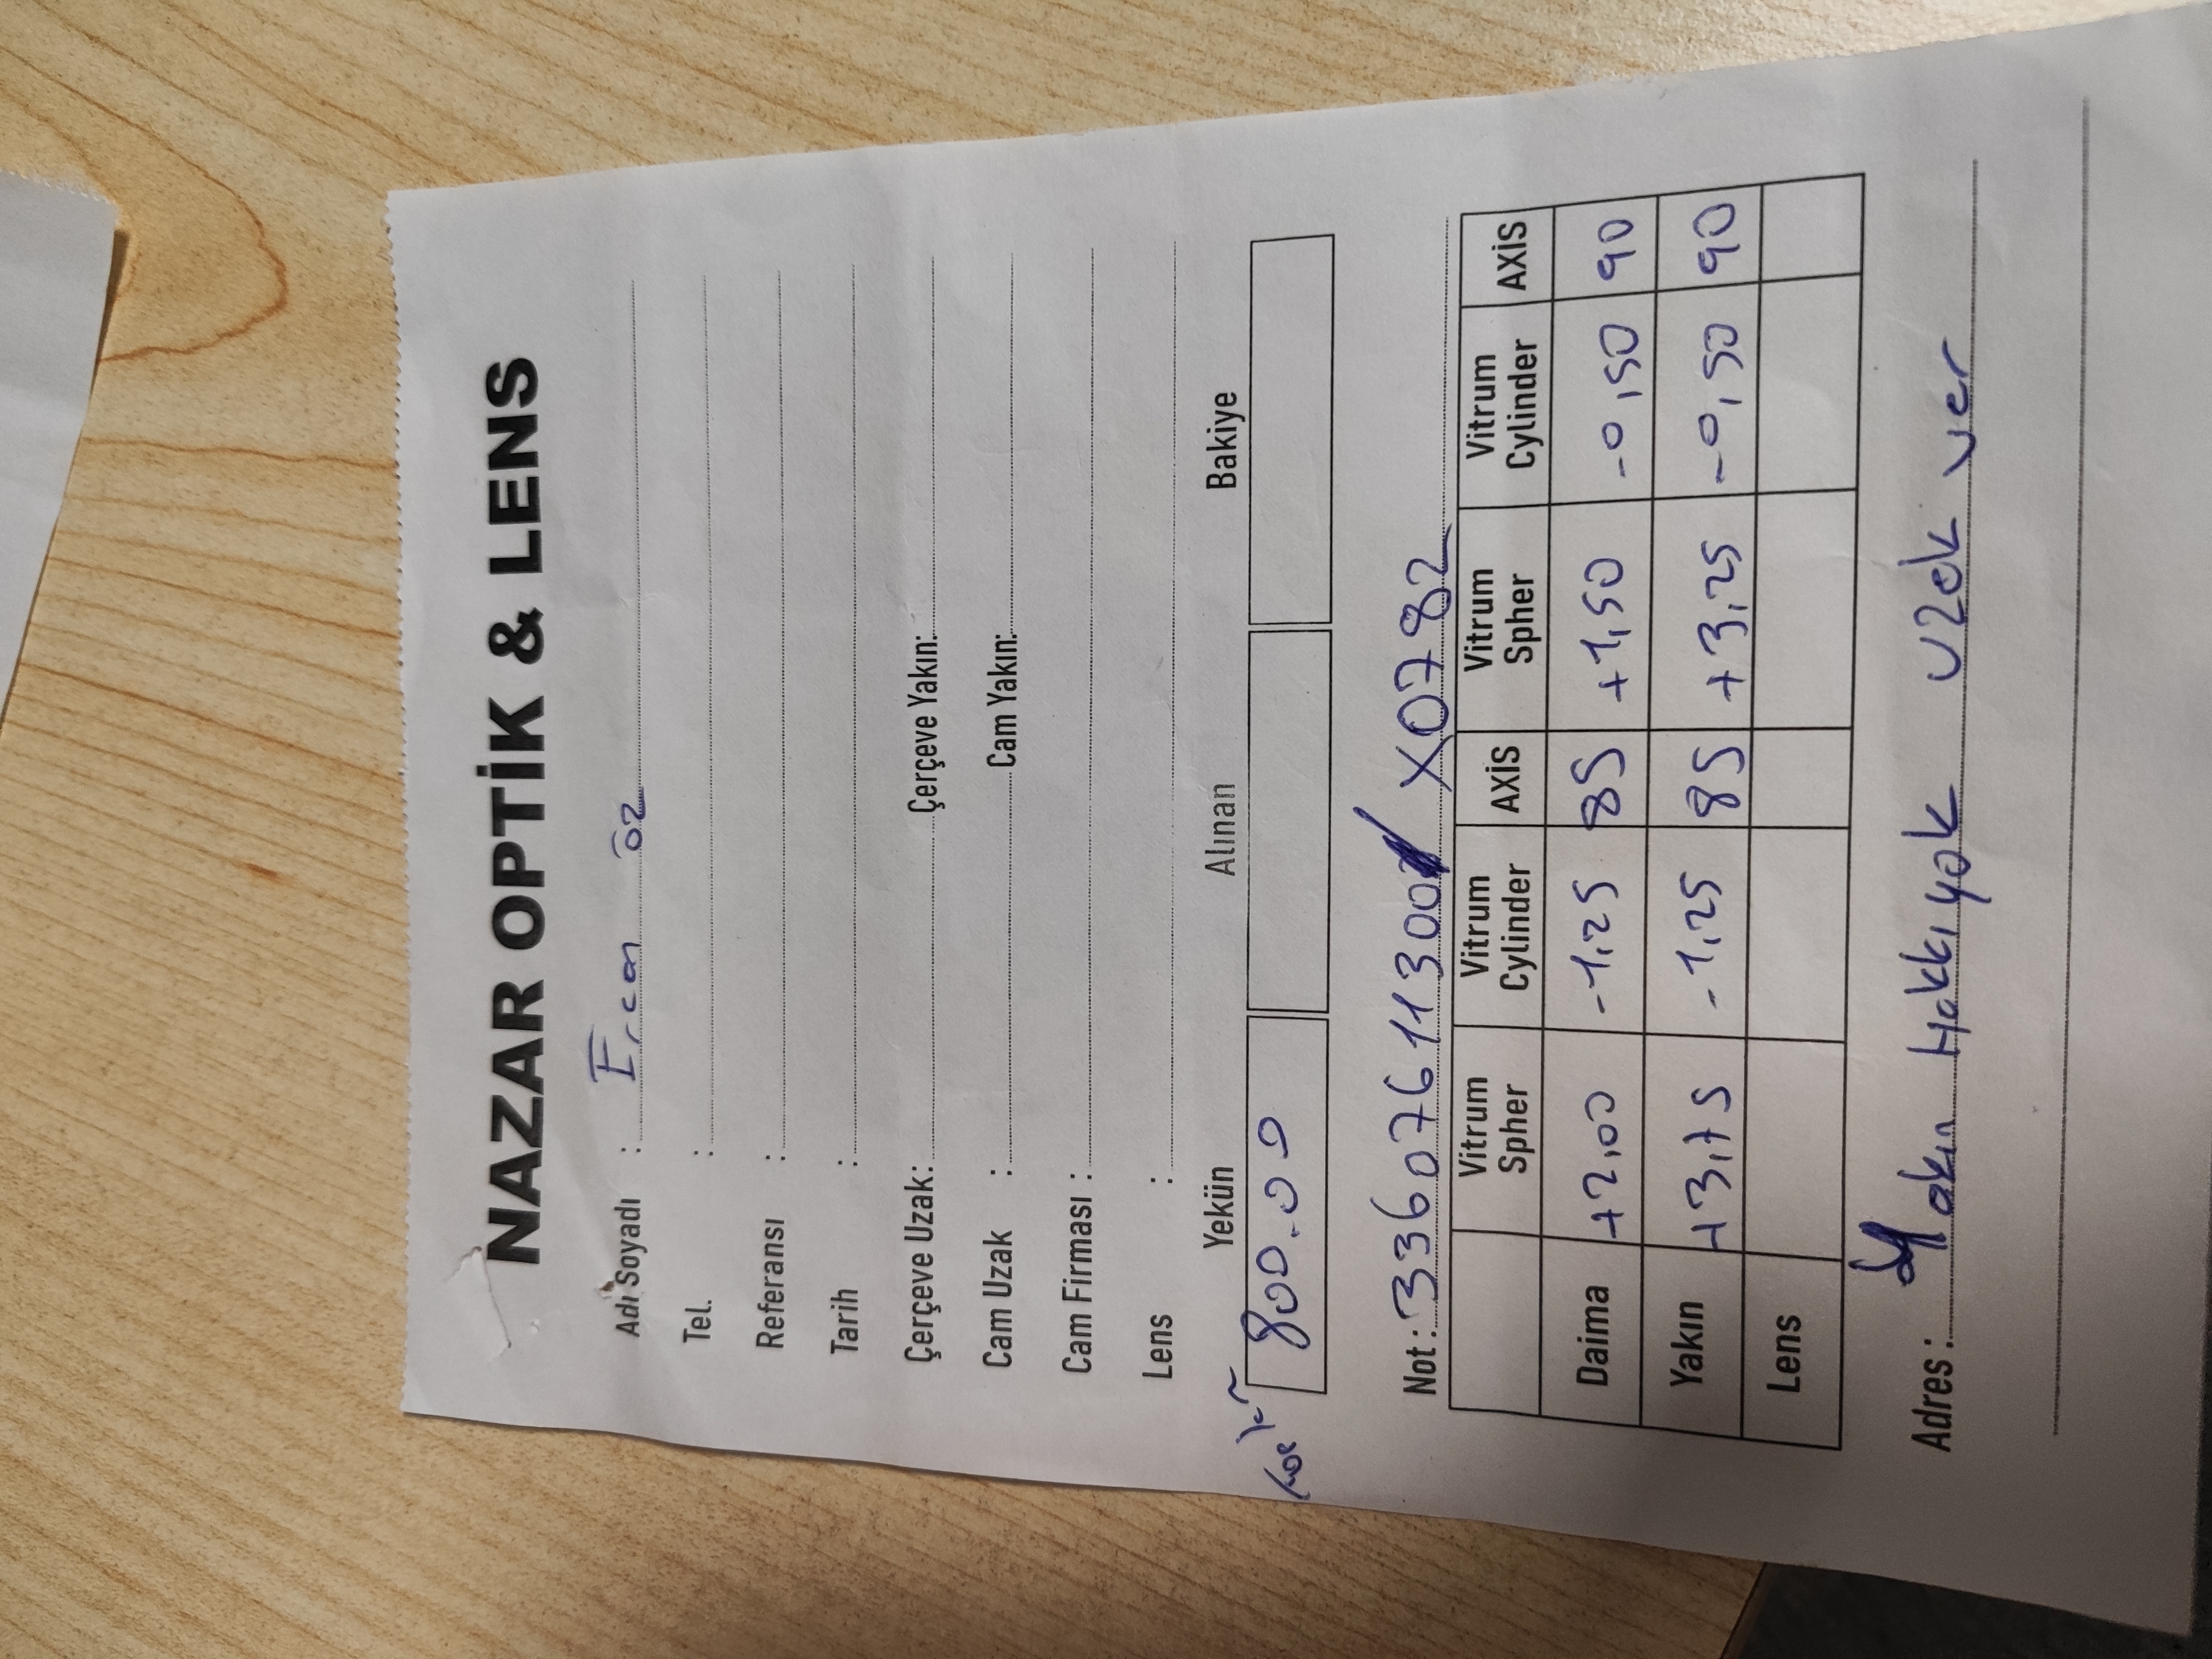 NAZAR OPTİK & LENS
Adı Soyadı : Ercan öz
Tel. :
Referansı :
Tarih :
Çerçeve Uzak: Çerçeve Yakın:
Cam Uzak : Cam Yakın:
Cam Firması :
Lens :
Yekün Alınan Bakiye
800.00
Not : 33607611300 X0782
Vitrum Spher Vitrum Cylinder AXİS Vitrum Spher Vitrum Cylinder AXİS
Daima +2,00 -1,25 85 +1,50 -0,50 90
Yakın +3,75 -1,25 85 +3,25 -0,50 90
Lens
Adres : Yakın Hakkı yok uzak ver